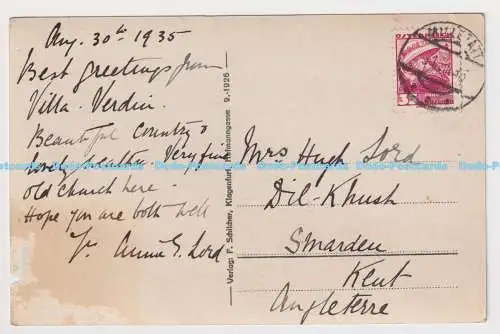 Aug. 30th 1935
Best greetings from
Villa Verdin.
Beautiful country &
lovely weather. Very fine
old church here.
Hope you are both well
Yr. Annie E. Lord
Verlag: F. Schilcher, Klagenfurt, 9.-1926
Mrs Hugh Lord
Dil-Khush
Smarden
Kent
Angleterre